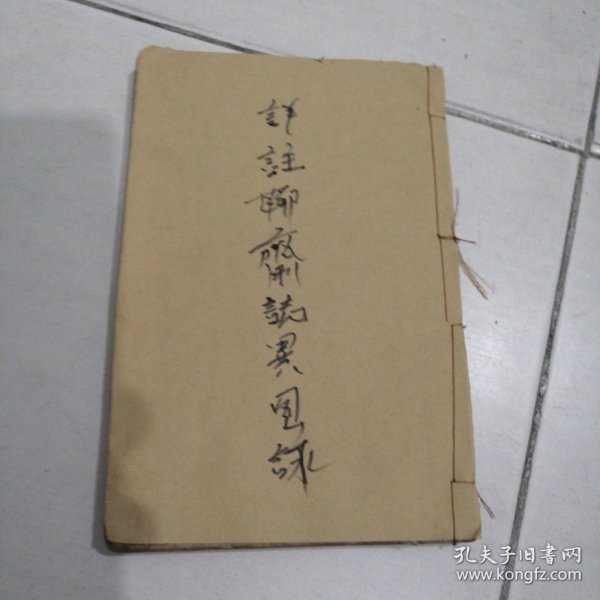 詳註聊齋誌異图詠
孔夫子旧书网
www.kongfz.com